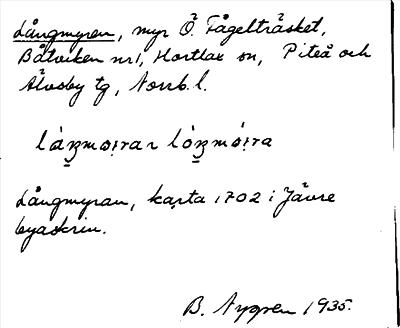 Långmyren, myr Ö. Fågelträsket,
Båtviken nr 1, Hortlax sn, Piteå och
Älvsby tg, Norrb. l.
Långmyran, karta 1702 i Jävre
byaskrin.
B. Nygren 1935.